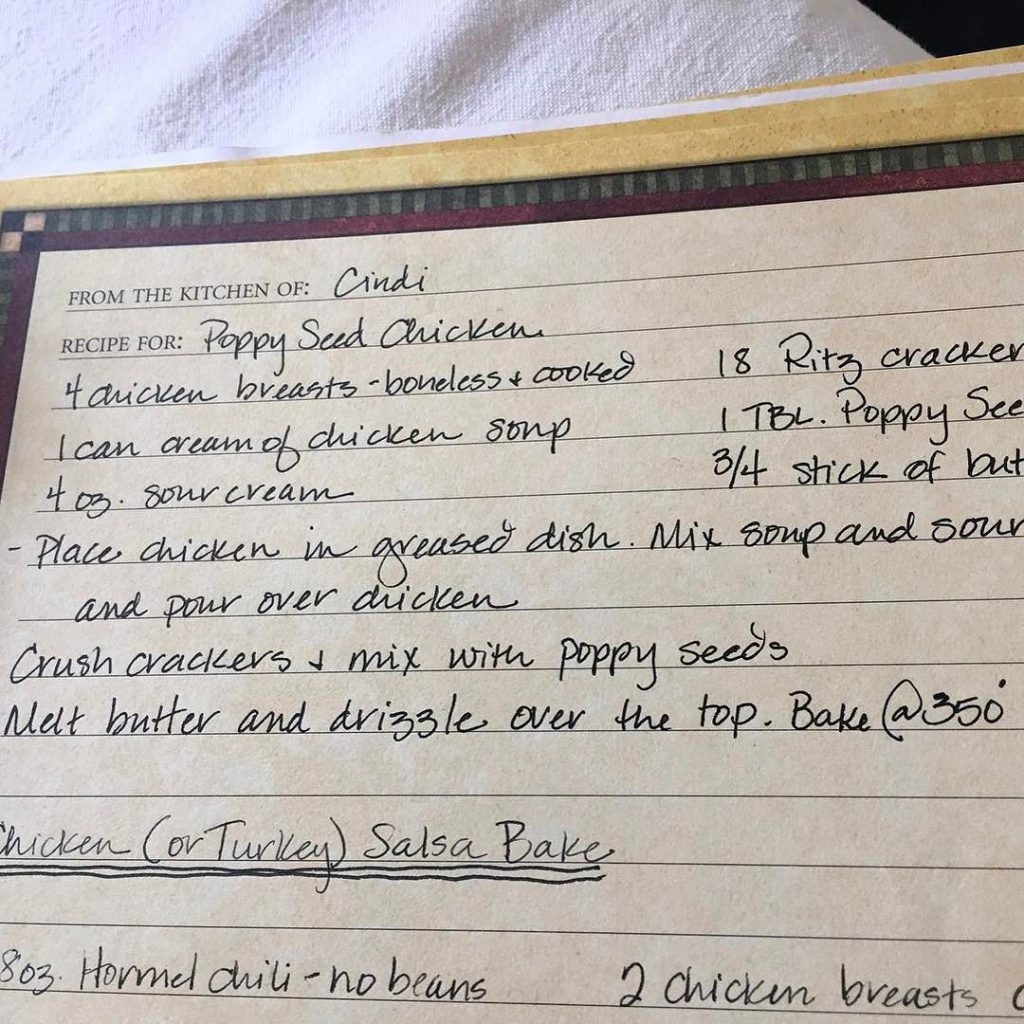 FROM THE KITCHEN OF: Cindi
RECIPE FOR: Poppy Seed Chicken
4 chicken breasts - boneless & cooked 18 Ritz cracker
1 can cream of chicken soup 1 TBL. Poppy See
4 oz. sour cream 3/4 stick of but
- Place chicken in greased dish. Mix soup and sour
and pour over chicken
Crush crackers & mix with poppy seeds
Melt butter and drizzle over the top. Bake @ 350°
Chicken (or Turkey) Salsa Bake
8oz. Hormel chili - no beans 2 chicken breasts